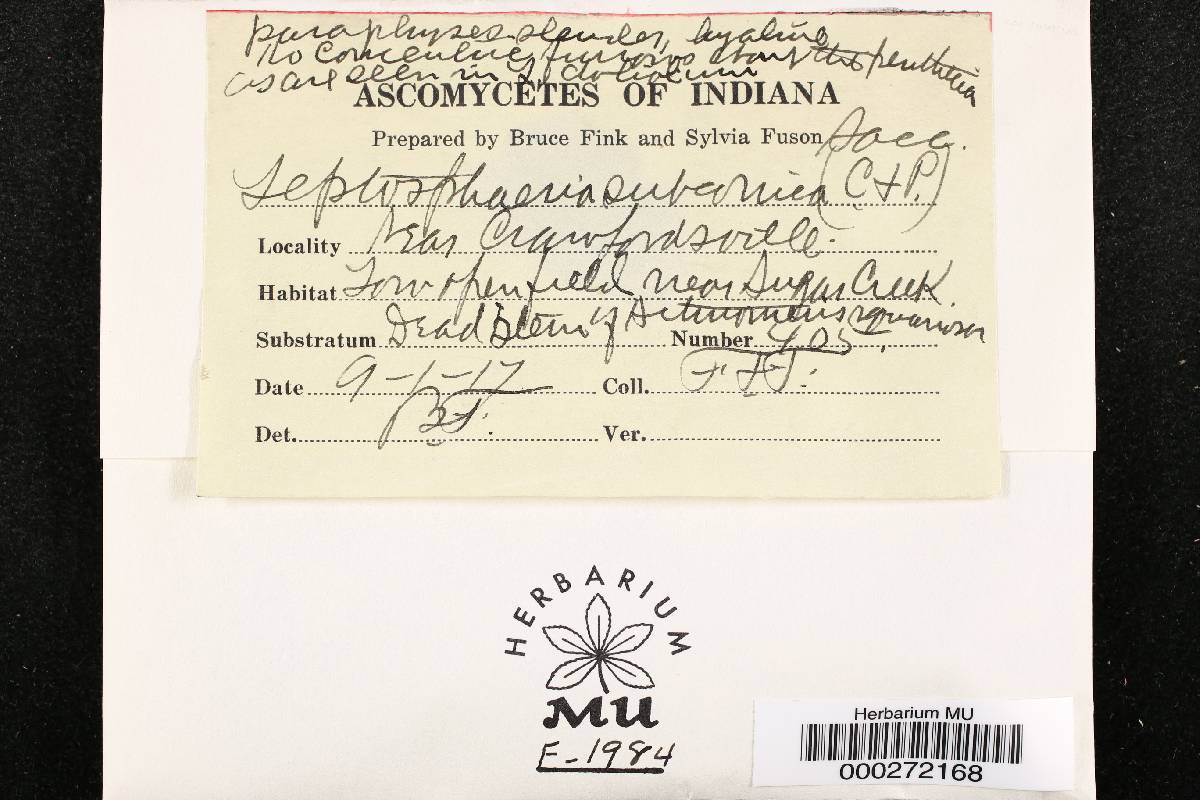 paraphyses slender, hyaline
no concentric furrows about the perithecia
as are seen in L. doliolum
ASCOMYCETES OF INDIANA
Prepared by Bruce Fink and Sylvia Fuson
Leptosphaeria subconica (C & P.) Sacc.
Locality Near Crawfordsville.
Habitat Low open field near Sugar Creek.
Substratum Dead stem of Actinomeris squarrosa
Number 405.
Date 9-1-17 Coll.
Det. B.F. Ver.
HERBARIUM
MU
F-1984
Herbarium MU
000272168